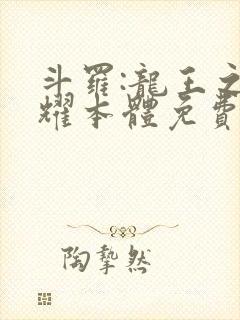 斗羅:龍王之
耀本體免費
陶摯然